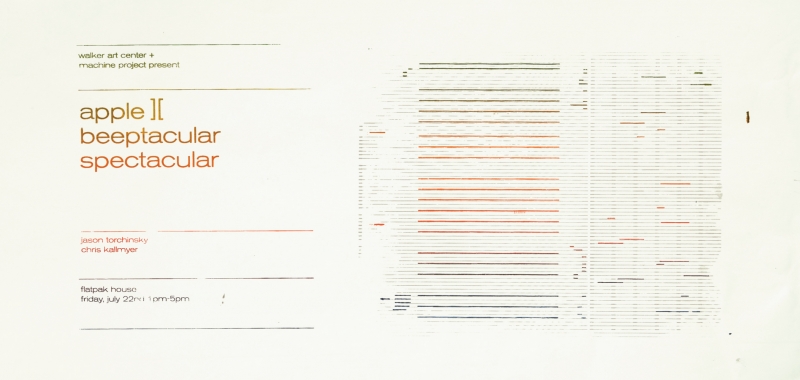 walker art center +
machine project present
apple ][
beeptacular
spectacular
jason torchinsky
chris kallmyer
flatpak house
friday, july 22nd 1pm-5pm